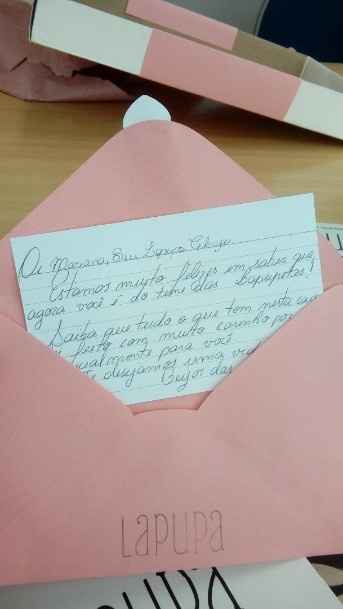 Oi Mariana,
Estamos muito felizes em saber que
agora você é do time das Lapupetes!
Saiba que tudo o que tem nesta cai
feito com muito carinho
ualmente para você
desejamos uma
Beijos das
LAPUPA